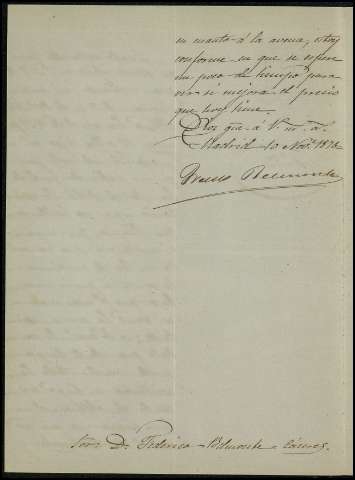 en cuanto á la avena, estoy
conforme en que se espere
un poco de tiempo para
ver si mejora el precio
que hoy tiene.
Dios gue. á V. m. a.
Madrid 10 Nov. 187
Belmonte
Sor. D. Federico Belmonte - Cáceres.